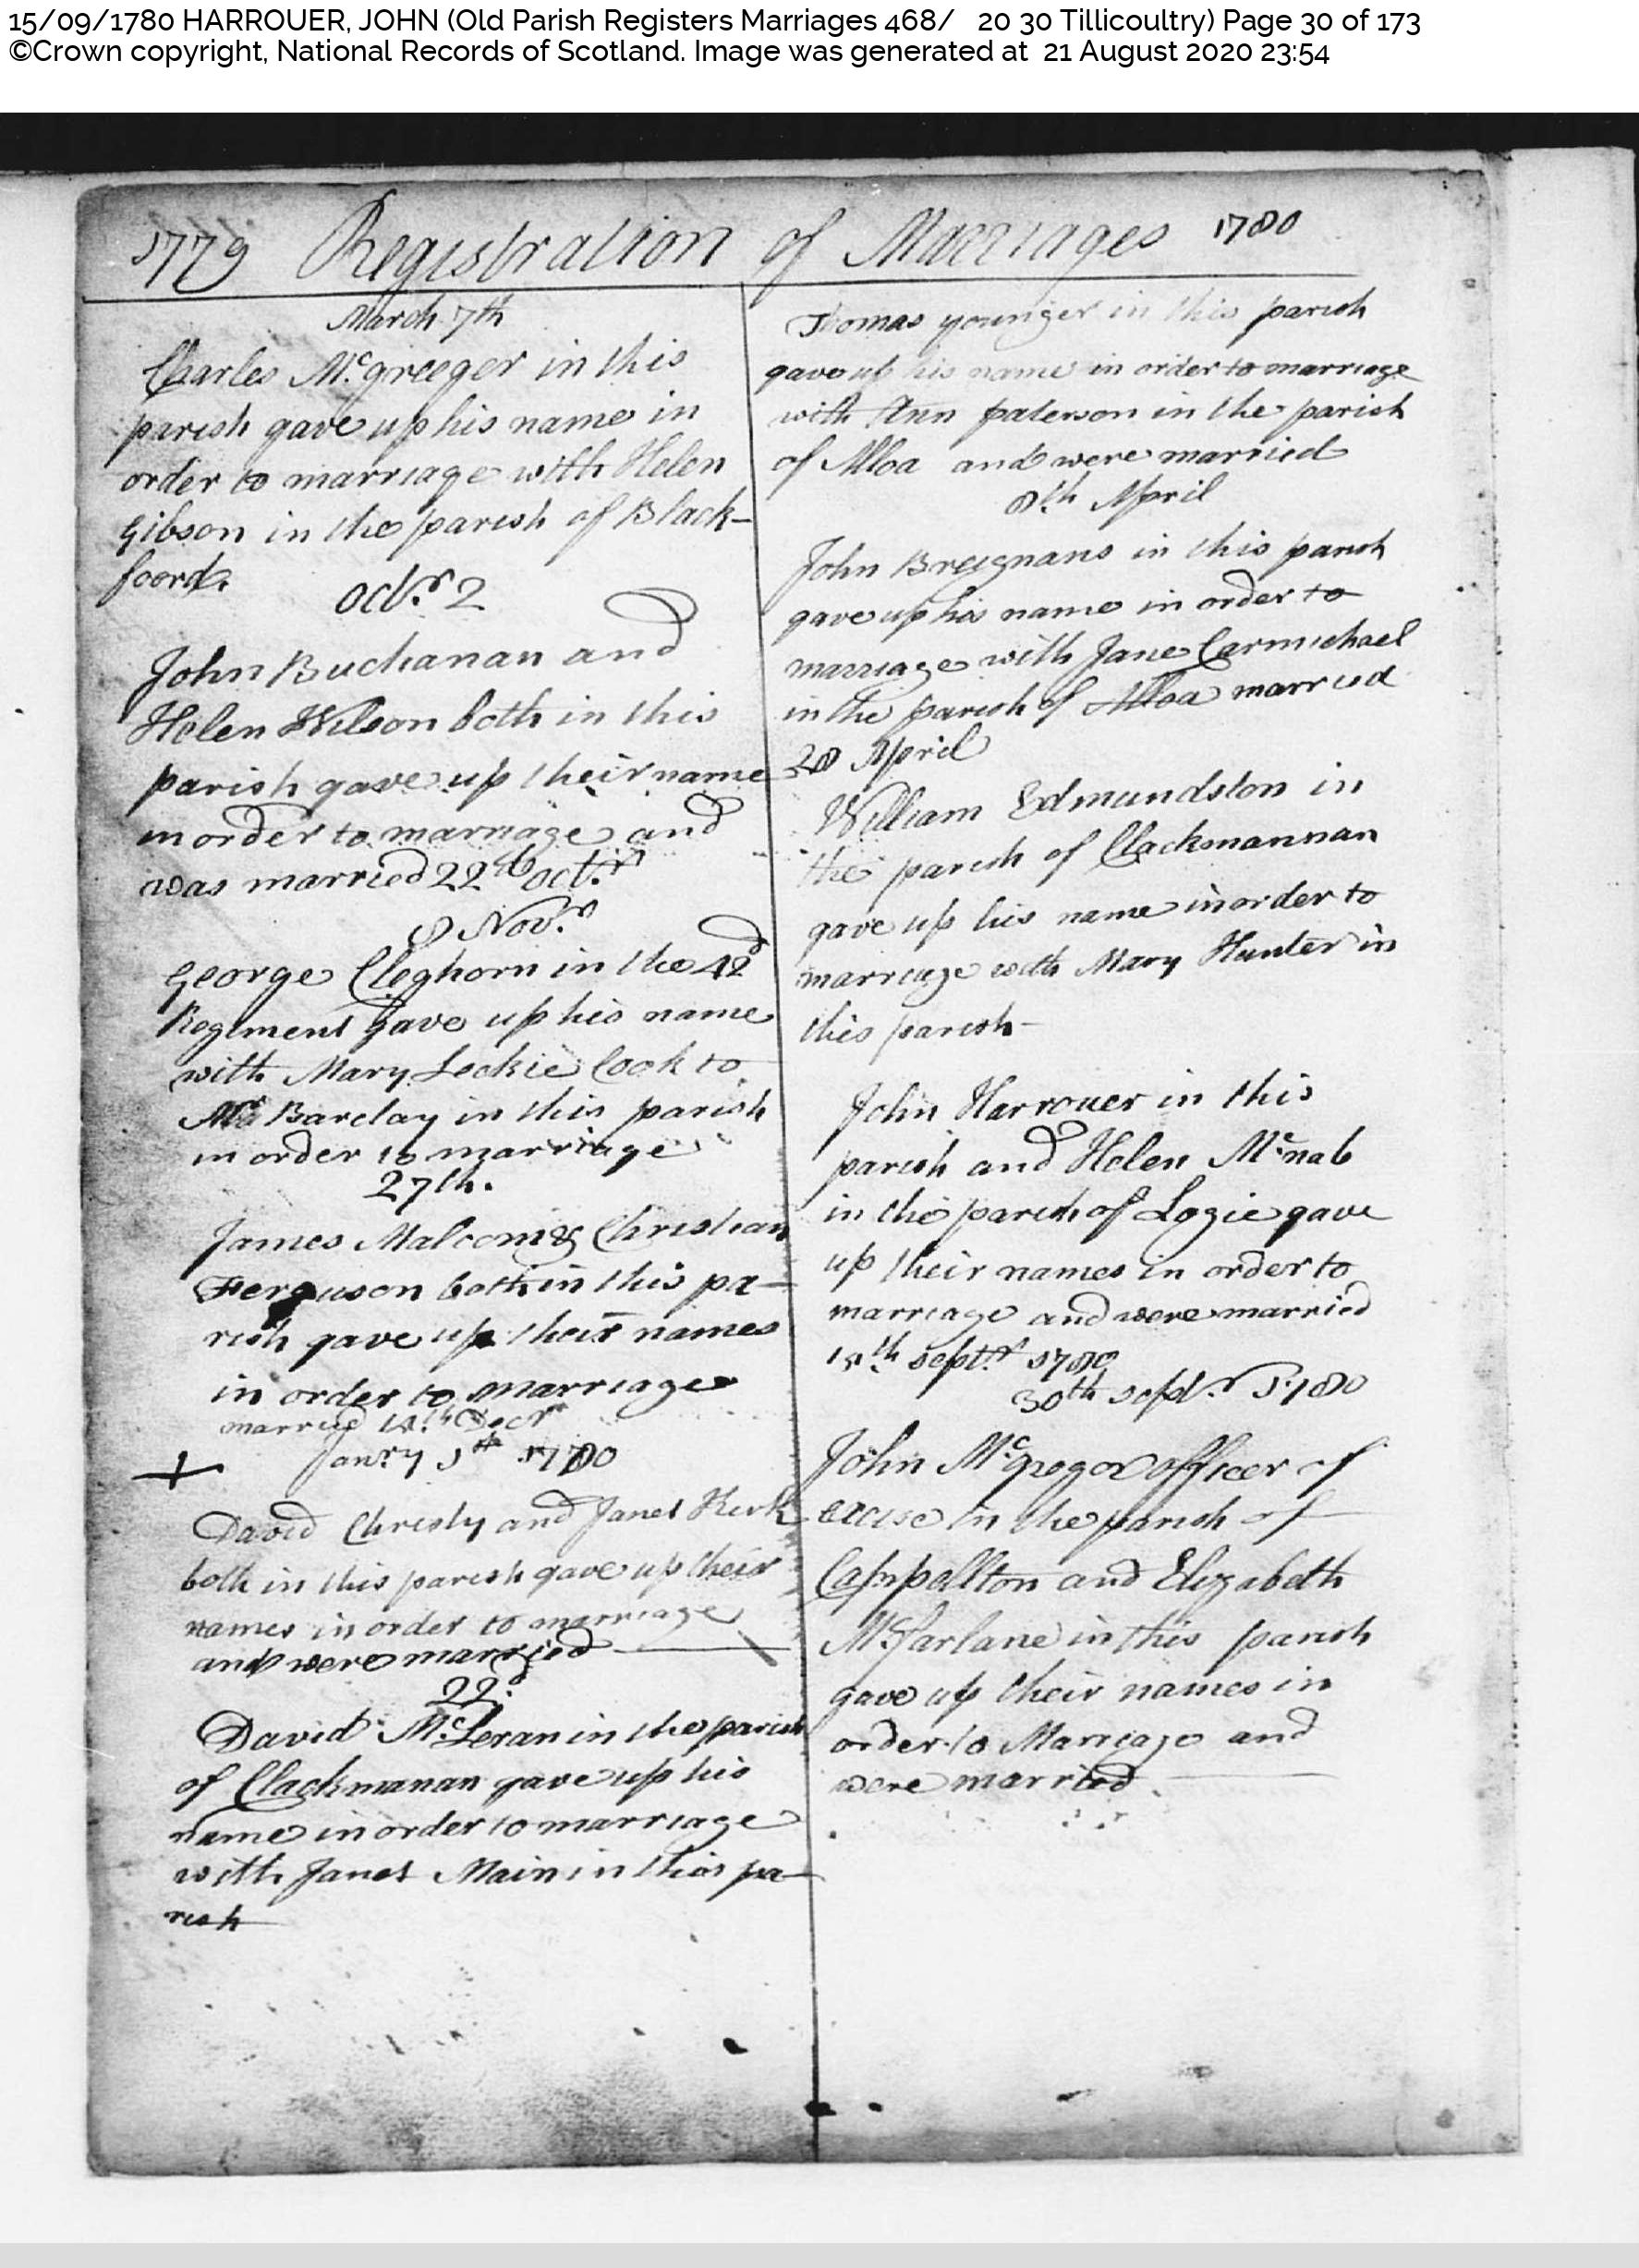 15/09/1780 HARROUER, JOHN (Old Parish Registers Marriages 468/ 20 30 Tillicoultry) Page 30 of 173
©Crown copyright, National Records of Scotland. Image was generated at 21 August 2020 23:54
1779 Registration of Marriages 1780
March 7th
Charles Mcgreeger in this
parish gave up his name in
order to marriage with Helen
Gibson in the parish of Black-
foord.
Octr. 2
John Buchanan and
Helen Wilson both in this
parish gave up their name
in order to marriage and
was married 22d Octr.
8 Novr.
George Cleghorn in the 42d
Regiment gave up his name
with Mary Leckie Cook to
Barclay in this parish
in order to marriage
27th.
James Malcom & Christian
Ferguson both in this pa-
rish gave up their names
in order to marriage
married Decr
Janry 1st 1780
David Christy and Janet Kirk
both in this parish gave up their
names in order to marriage
and were married
22d.
David McLeran in the parish
of Clackmanan gave up his
name in order to marriage
with Janet Main in this pa-
rish
Thomas younger in this parish
gave up his name in order to marriage
with Ann paterson in the parish
of Alloa and were married
8th April
John in this parish
gave up his name in order to
marriage with Jane Carmichael
in the parish of Alloa married
28 April
William Edmundston in
the parish of Clackmannan
gave up his name in order to
marriage with Mary Hunter in
this parish-
John Harrouer in this
parish and Helen Mcnab
in the parish of Logie gave
up their names in order to
marriage and were married
15th Septr. 1780
30th Septr. 1780
John Mcgregor officer of
excise in the parish of
Campellton and Elizabeth
McFarlane in this parish
gave up their names in
order to Marriage and
were married